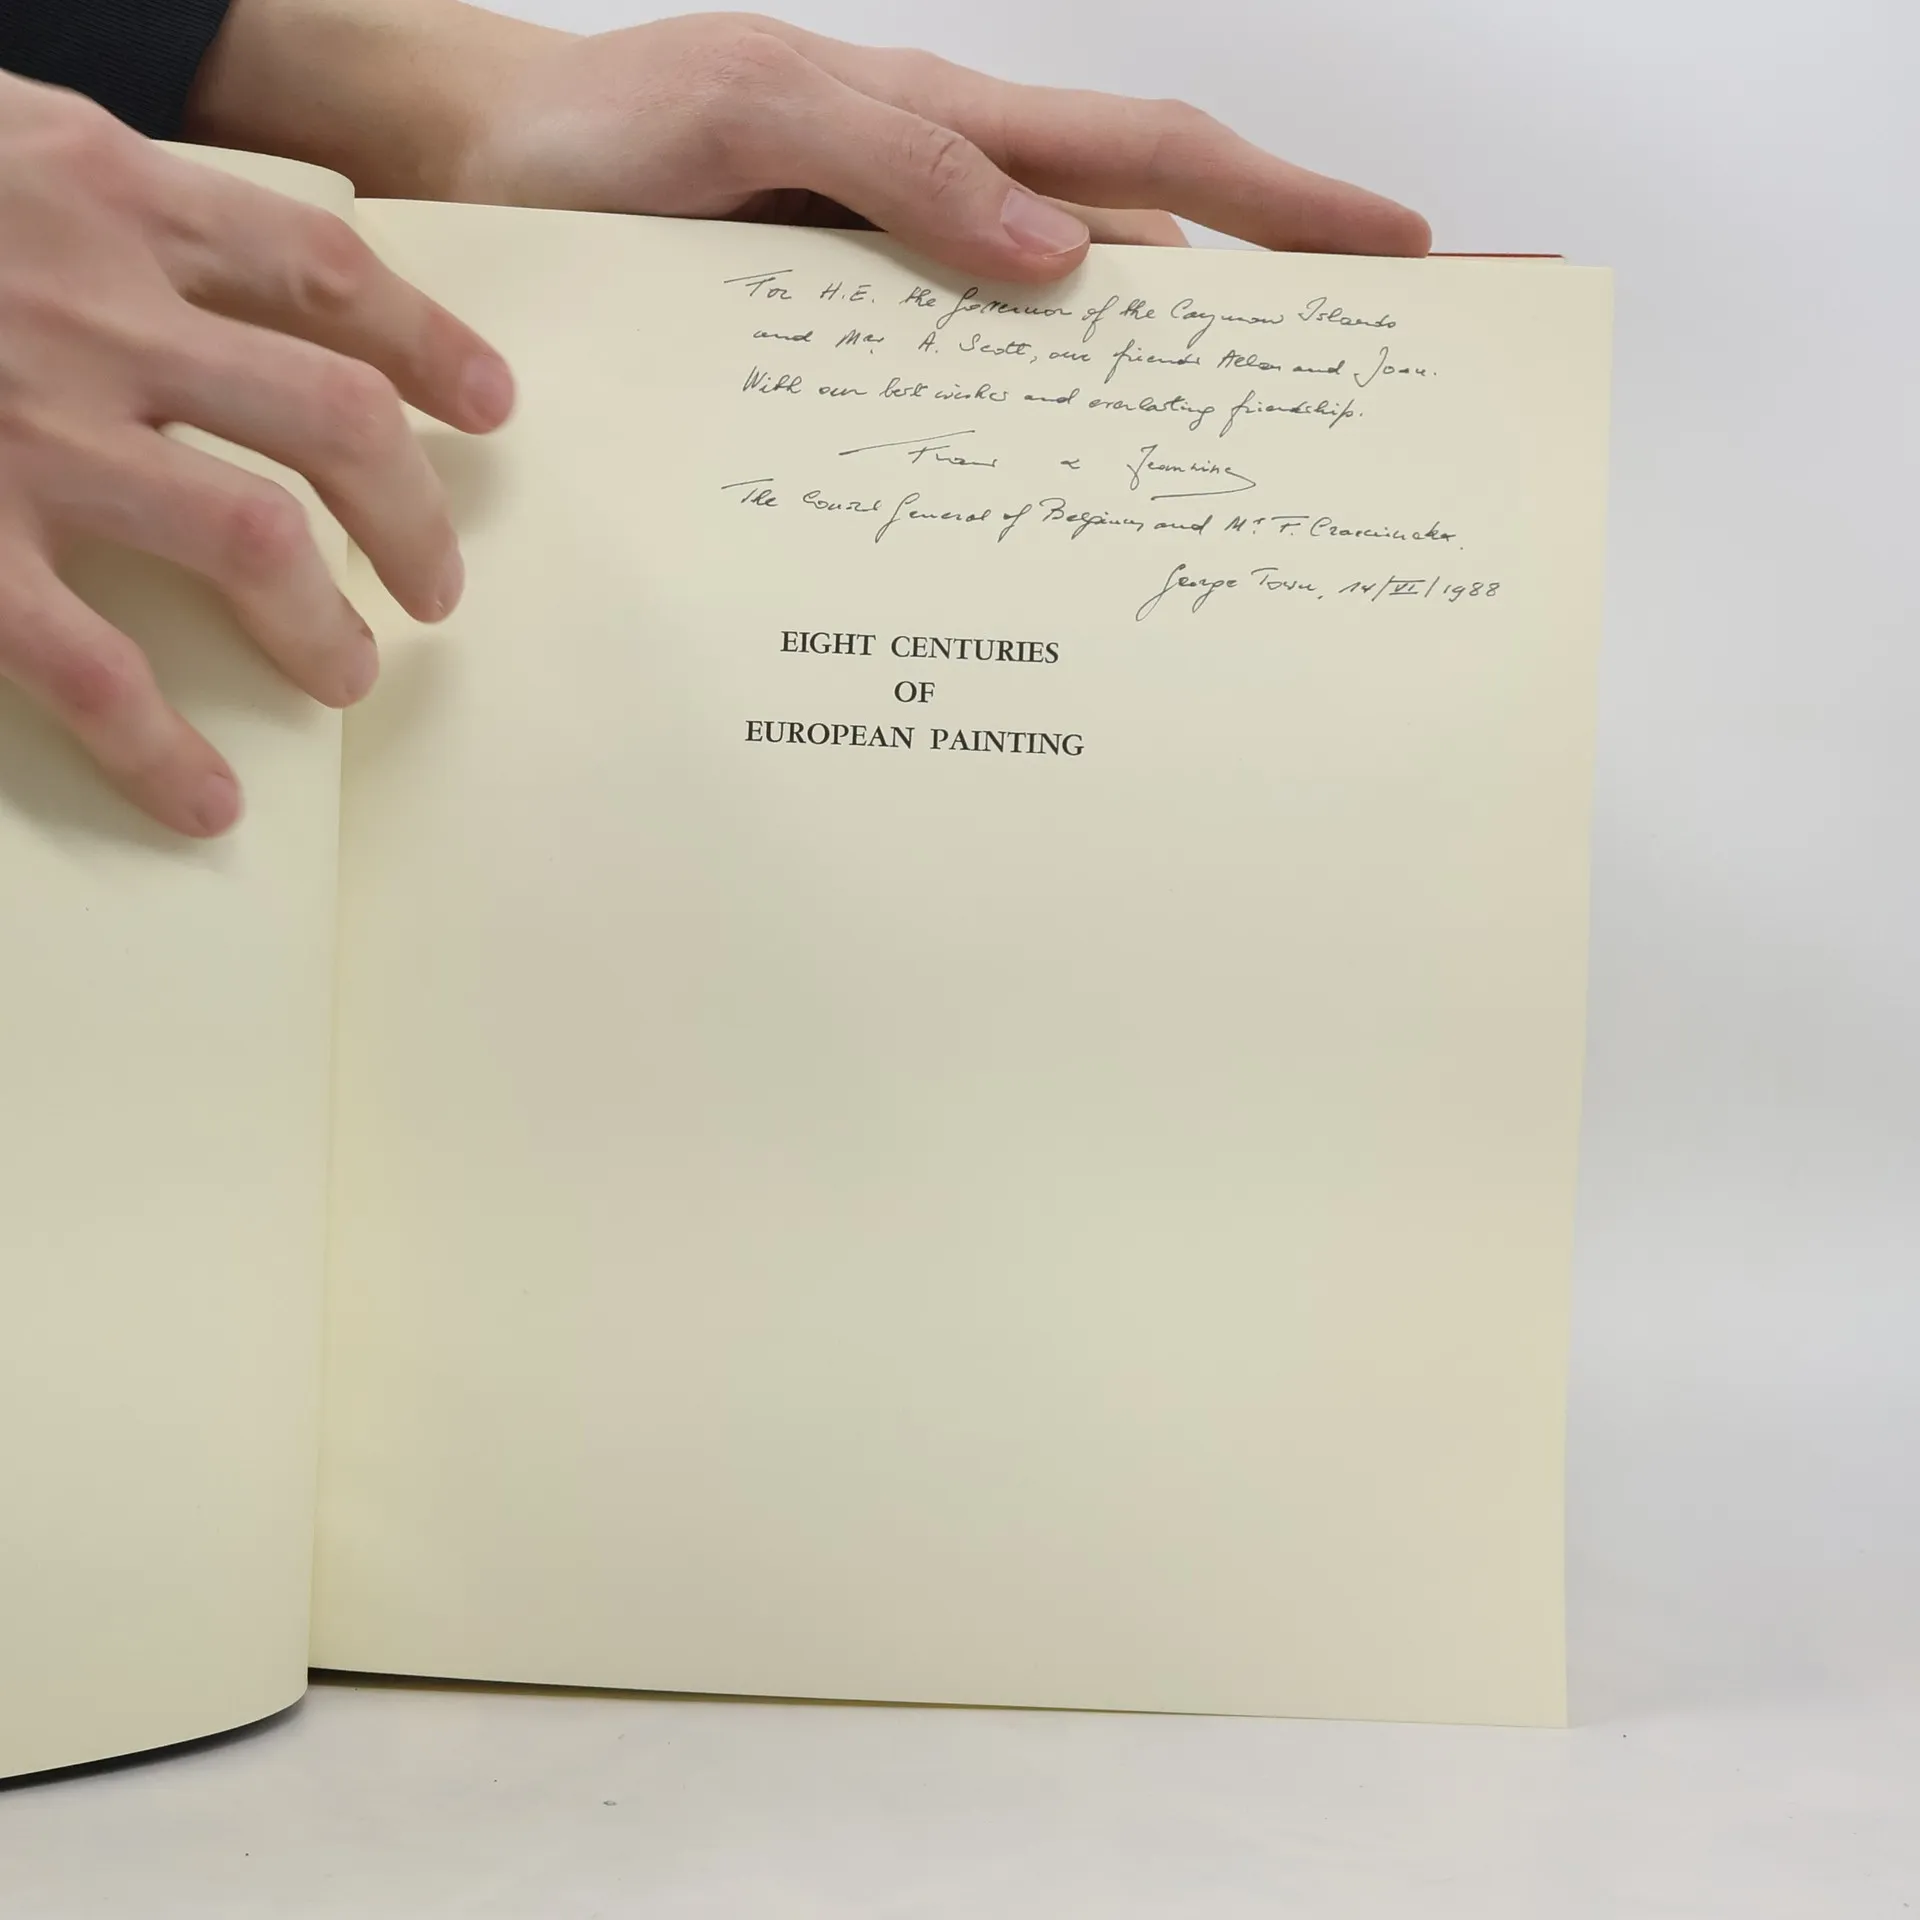 For H.E. the Governor of the Cayman Islands
and Mrs. A. Scott, our friends Allan and Joan.
With our best wishes and everlasting friendship.
Frans & Jeannine
The Consul General of Belgium and Mrs. F.
George Town, 14/VI/1988
EIGHT CENTURIES
OF
EUROPEAN PAINTING